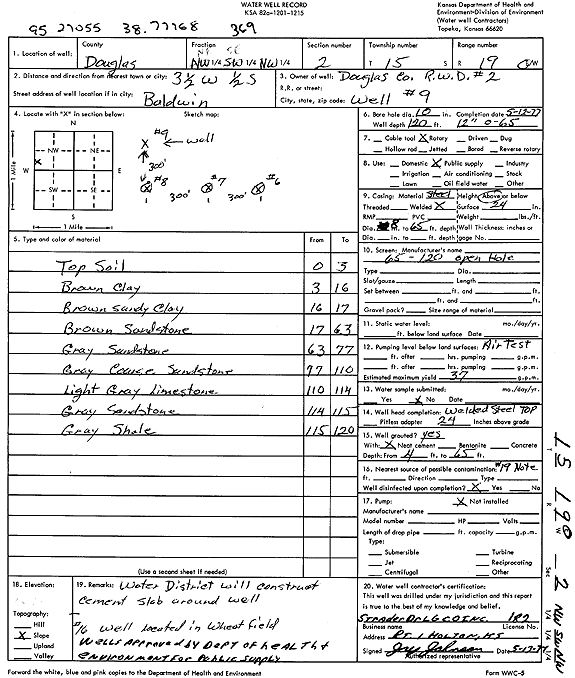 WATER WELL RECORD
KSA 82a-1201-1215
Kansas Department of Health and
Environment-Division of Environment
(Water well Contractors)
Topeka, Kansas 66620
95 27055 38.77168 369
1. Location of well:
County
Douglas
Fraction
NW 1/4 SW 1/4 NW 1/4
Section number
2
Township number
T 15 S
Range number
R 19 E/W
2. Distance and direction from nearest town or city: 3½ W ½ S
Street address of well location if in city: Baldwin
3. Owner of well: Douglas Co. R.W.D. #2
R.R. or street:
City, state, zip code: Well #9
4. Locate with "X" in section below:
Sketch map:
N
NW NE
W E
SW SE
S
1 Mile
1 Mile
X #9 well
300'
#8 #7 #6
300' 300'
5. Type and color of material From To
Top Soil 0 3
Brown Clay 3 16
Brown Sandy Clay 16 17
Brown Sandstone 17 63
Gray Sandstone 63 77
Gray Coarse Sandstone 77 110
Light Gray Limestone 110 114
Gray Sandstone 114 115
Gray Shale 115 120
(Use a second sheet if needed)
6. Bore hole dia. 10 in. Completion date 5-12-77
Well depth 120 ft. 12" 0-65
7. Cable tool X Rotary Driven Dug
Hollow rod Jetted Bored Reverse rotary
8. Use: Domestic X Public supply Industry
Irrigation Air conditioning Stock
Lawn Oil field water Other
9. Casing: Material Steel Height: Above or below
Threaded Welded X Surface 24 in.
RMP PVC Weight lbs./ft.
Dia. 8 in. to 65 ft. depth Wall Thickness: inches or
Dia. in. to ft. depth gage No.
10. Screen: Manufacturer's name
65 - 120 open Hole
Type Dia.
Slot/gauze Length
Set between ft. and ft.
ft. and ft.
Gravel pack? Size range of material
11. Static water level: mo./day/yr.
ft. below land surface Date
12. Pumping level below land surfaces: Air Test
ft. after hrs. pumping g.p.m.
ft. after hrs. pumping g.p.m.
Estimated maximum yield 37 g.p.m.
13. Water sample submitted: mo./day/yr.
Yes X No Date
14. Well head completion: Welded Steel Top
Pitless adapter 24 Inches above grade
15. Well grouted? yes
With: X Neat cement Bentonite Concrete
Depth: From 4 ft. to 65 ft.
16. Nearest source of possible contamination: #19 Note
ft. Direction Type
Well disinfected upon completion? X Yes No
17. Pump: X Not installed
Manufacturer's name
Model number HP Volts
Length of drop pipe ft. capacity g.p.m.
Type:
Submersible Turbine
Jet Reciprocating
Centrifugal Other
18. Elevation:
Topography:
Hill
X Slope
Upland
Valley
19. Remarks: Water District will construct
cement slab around well
#16 Well located in Wheat field
Wells Approved by Dept of health &
Environment for Public Supply
20. Water well contractor's certification:
This well was drilled under my jurisdiction and this report
is true to the best of my knowledge and belief.
Strader Drlg Co Inc. 182
Business name License No.
Address Rt. 1 Holton, Ks
Signed Date 5-17-77
Authorized representative
Forward the white, blue and pink copies to the Department of Health and Environment
Form WWC-5
T 15 R 19 W Sec 2 NW SW NW
1/4 1/4 1/4